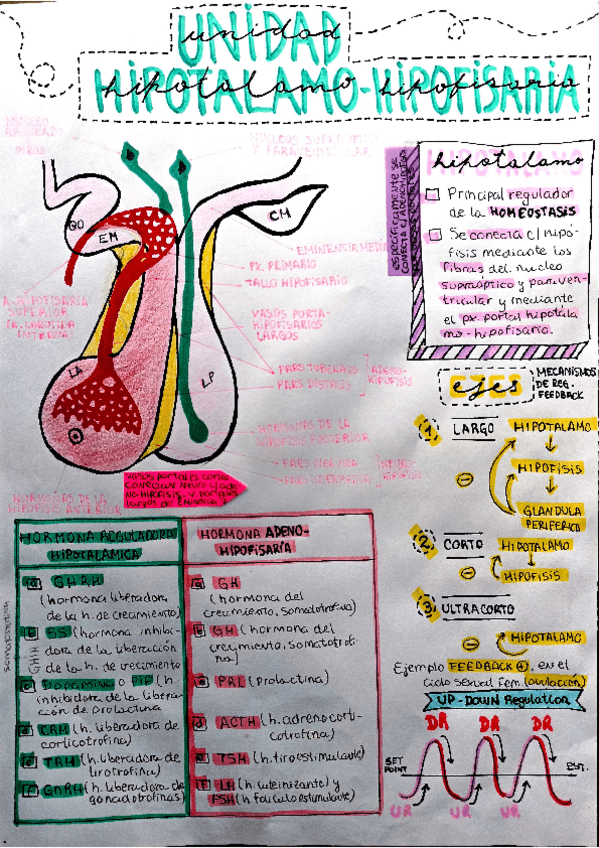 unidad
UNIDAD
hipotalamo-hipofisaria
HIPOTALAMO-HIPOFISARIA
NÚCLEO
ARCUATO
OTROS
NÚCLEOS SUPRAÓPTICO
Y PARAVENTRICULAR
QO
EM
CM
EMINENCIA MEDIA
PX. PRIMARIO
TALLO HIPOFISARIO
A. HIPOFISARIA
SUPERIOR
(A. CAROTIDA
INTERNA)
VASOS PORTA-
HIPOFISARIOS
LARGOS
LA
LP
PARS TUBERALIS
PARS DISTALIS
ADENO-
HIPOFISIS
HORMONAS DE LA
HIPOFISIS POSTERIOR
PARS NERVOSA
PARS INTERMEDIA
HORMONAS DE LA
HIPOFISIS ANTERIOR
VASOS PORTALES CORTOS
CONECTAN NEURO C/ADE-
NO HIPOFISIS. V. PORTALES
LARGOS DE EMINENCIA
HIPOTALAMO
hipotalamo
Principal regulador
de la HOMEOSTASIS
Se conecta c/ hipó-
fisis mediante las
fibras del nucleo
supraóptico y paraven-
tricular y mediante
el px. portal hipotála
mo-hipofisario.
ESPECIFICAMENTE SE
CONECTA C/ ADENOHIPOFISIS
ejes
MECANISMOS
DE REG.
FEEDBACK
1 LARGO
HIPOTALAMO
HIPOFISIS
GLANDULA
PERIFERICA
2 CORTO
HIPOTALAMO
HIPOFISIS
3 ULTRACORTO
HIPOTALAMO
Ejemplo FEEDBACK ⊕, en el
ciclo sexual fem. (ovulación)
UP-DOWN Regulation
DR DR DR
SET
POINT
EST.
UR UR UR
HORMONA REGULADORA
HIPOTALAMICA
a GHRH
(hormona liberadora
de la h. de crecimiento)
b SS (hormona inhibi-
dora de la liberación
de la h. de crecimiento
GHIH
somatostatina
c Dopamina o PIF (h.
inhibidora de la libera-
ción de prolactina
d CRH (h. liberadora de
corticotrofina)
e TRH (h. liberadora de
tirotrofina)
f GnRH (h. liberadora de
gonadotrofinas)
HORMONA ADENO-
HIPOFISARIA
a GH
(hormona del
crecimiento, somatotrofina)
b GH (hormona del
crecimiento, somatotrofi
na)
c PRL (prolactina)
d ACTH (h. adrenocorti-
cotrofina)
e TSH (h. tiroestimulante)
f LH (h. luteinizante) y
FSH (h. foliculoestimulante)